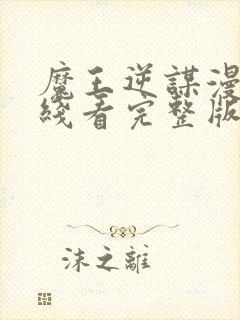 魔王逆謀漫
綫看完整版
沫之離